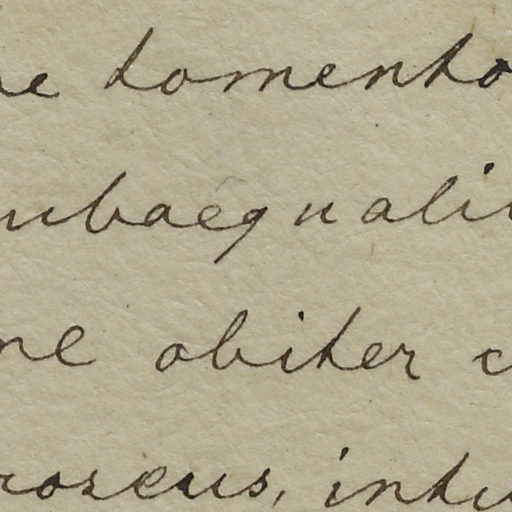 ne tomento
ubaequali
ne obiter c
roseus, intu